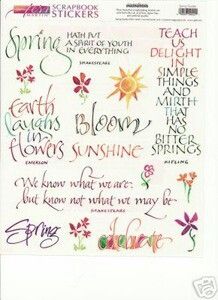 SCRAPBOOK
STICKERS
Spring
HATH PUT
A SPIRIT OF YOUTH
IN EVERYTHING
SHAKESPEARE
TEACH
US
DELIGHT
IN
SIMPLE
THINGS
AND
MIRTH
THAT
HAS NO
BITTER
SPRINGS
KIPLING
earth
laughs
in
flowers
EMERSON
Bloom
SUNSHINE
We know what we are:
but know not what we may be
SHAKESPEARE
Spring
celebrate